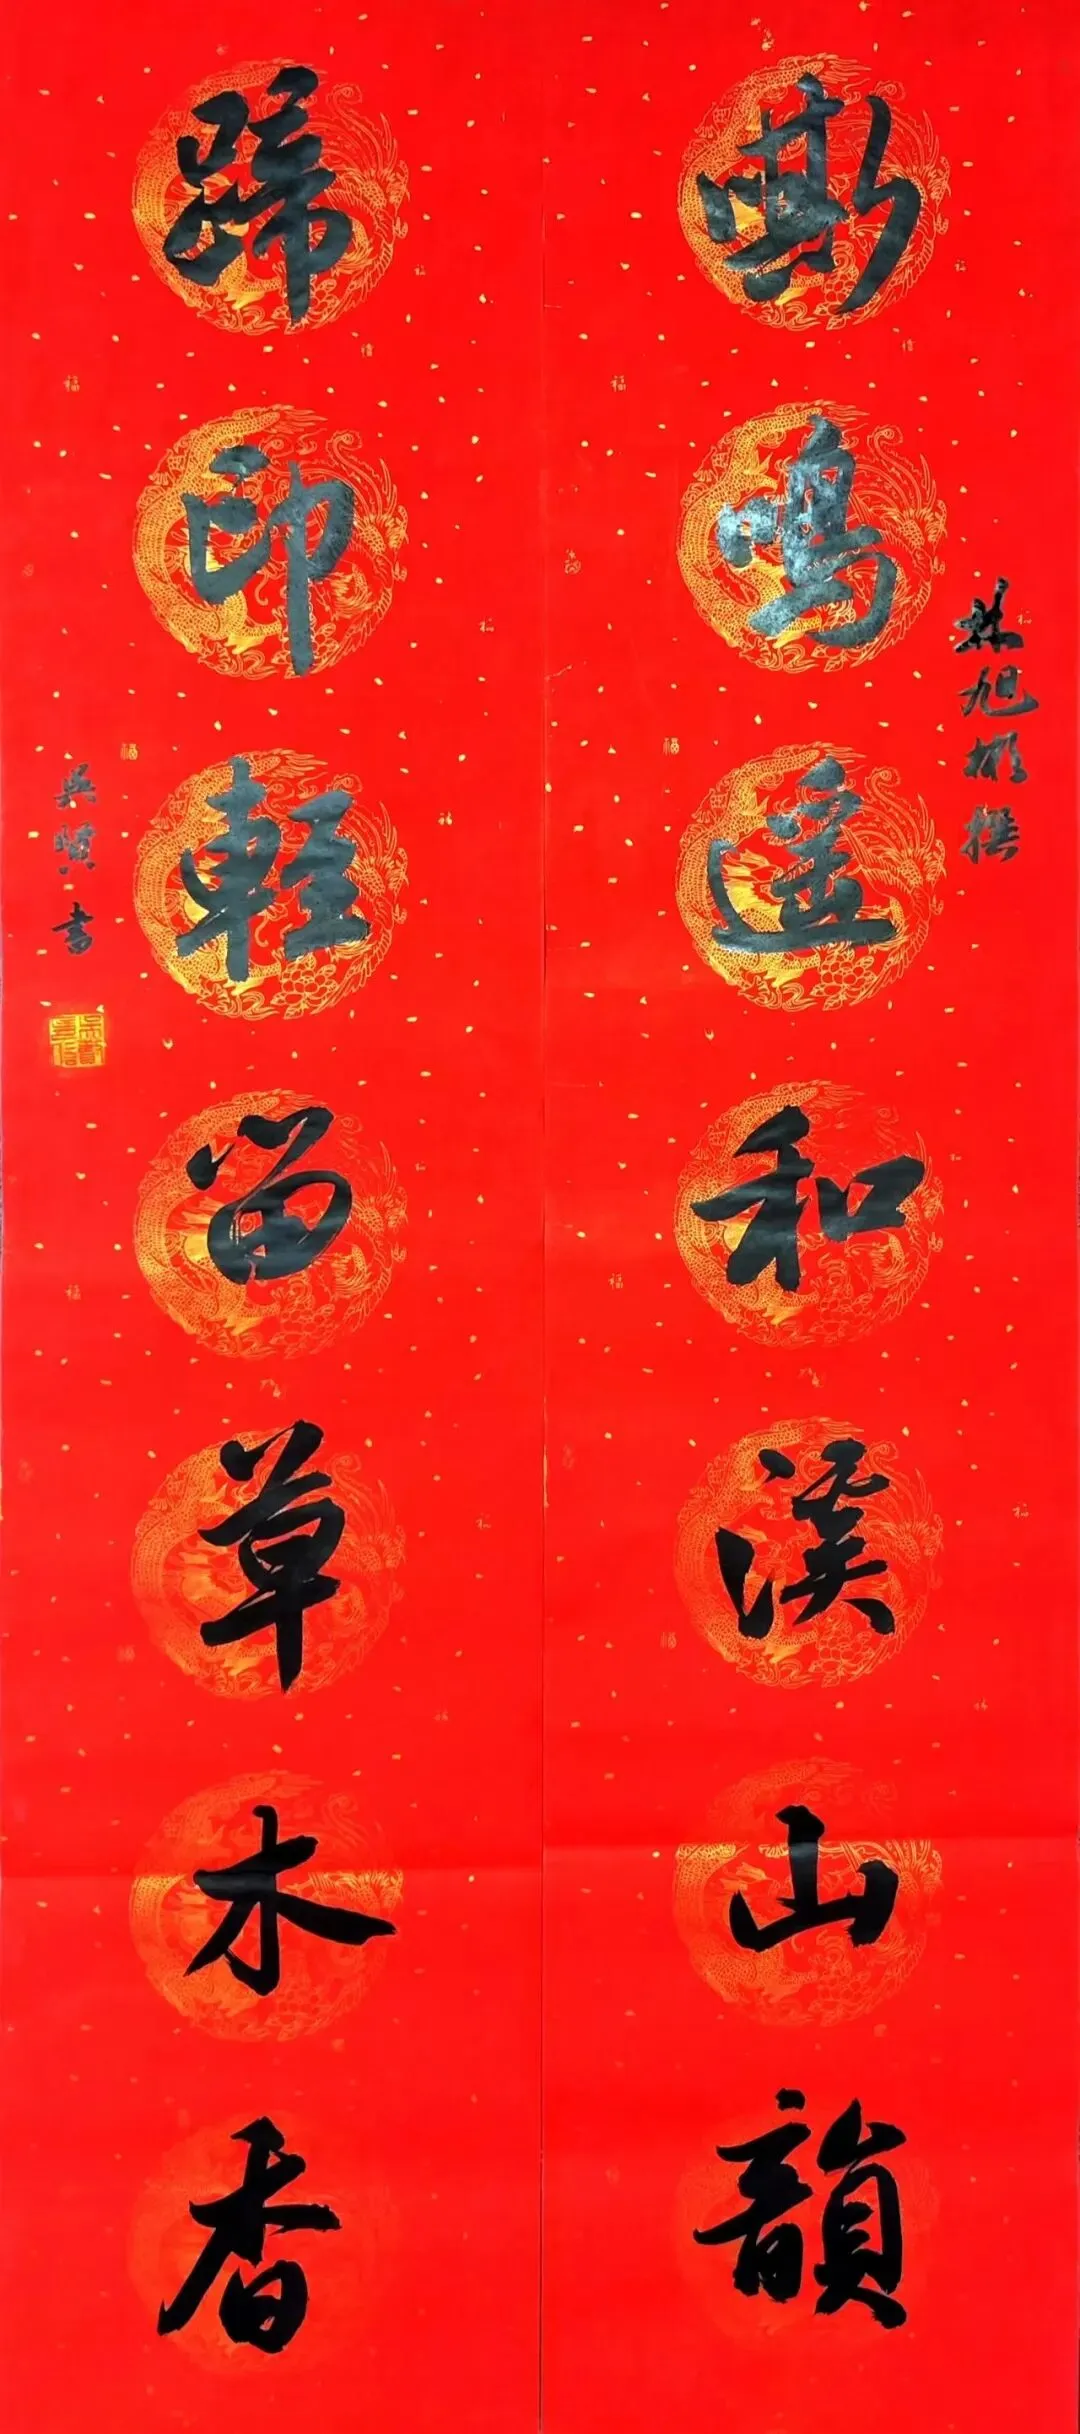 嘶鳴遥和溪山韻
林旭彬撰
蹄印輕留草木香
吳賢書